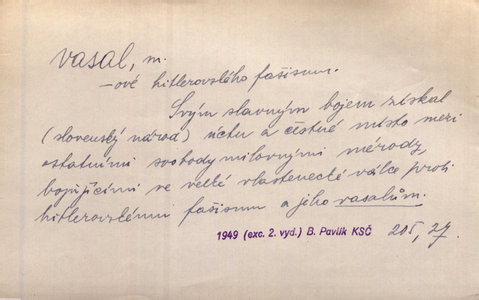 vasal, m.
-ové hitlerovského fašismu.
Svým slavným bojem získal
(slovenský národ) úctu a čestné místo mezi
ostatními svobodymilovnými národy,
bojujícími ve velké vlastenecké válce proti
hitlerovskému fašismu a jeho vasalům.
1949 (exc. 2. vyd.) B. Pavlík KSČ 205, 27.